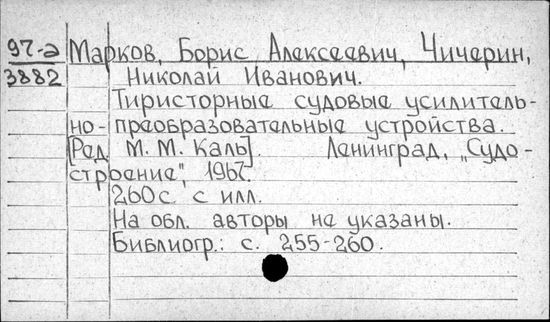 97-а Марков, Борис Алексеевич, Чичерин,
3882 Николай Иванович.
Тиристорные судовые усилитель-
но-преобразовательные устройства.
[Ред. М. М. Каль]. Ленинград, „Судо-
строение", 1967.
260 с. с илл.
На обл. авторы не указаны.
Библиогр.: с. 255-260.